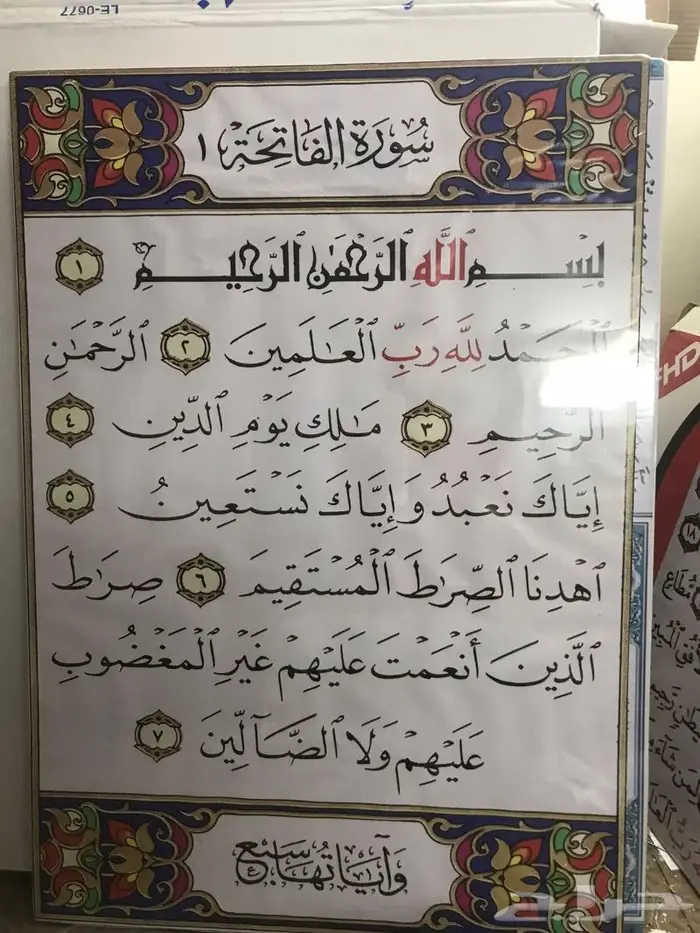 LE-0677
سُورَةُ الفَاتِحَةِ ١
بِسْمِ ٱللَّهِ ٱلرَّحْمَٰنِ ٱلرَّحِيمِ ١
ٱلْحَمْدُ لِلَّهِ رَبِّ ٱلْعَٰلَمِينَ ٢ ٱلرَّحْمَٰنِ
ٱلرَّحِيمِ ٣ مَٰلِكِ يَوْمِ ٱلدِّينِ ٤
إِيَّاكَ نَعْبُدُ وَإِيَّاكَ نَسْتَعِينُ ٥
ٱهْدِنَا ٱلصِّرَٰطَ ٱلْمُسْتَقِيمَ ٦ صِرَٰطَ
ٱلَّذِينَ أَنْعَمْتَ عَلَيْهِمْ غَيْرِ ٱلْمَغْضُوبِ
عَلَيْهِمْ وَلَا ٱلضَّآلِّينَ ٧
وَآيَاتُهَا سَبْعٌ
HD
حراج